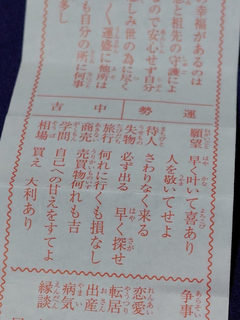 の幸福があるのは
と祖先の守護によ
なので安心せず自分
しみ世の為に尽く
く 運盛に他所は
も自分の所に何事
多し
運勢
中吉
願望 早く叶いて喜あり
人を敬いてせよ
待人 さわりなく来る
失物 必ず出る 早く探せ
旅行 何れに行くも損なし
商売 売買物何れも吉
学問 自己への甘えをすてよ
相場 買え 大利あり
争事
恋愛
転居
出産
病気
縁談